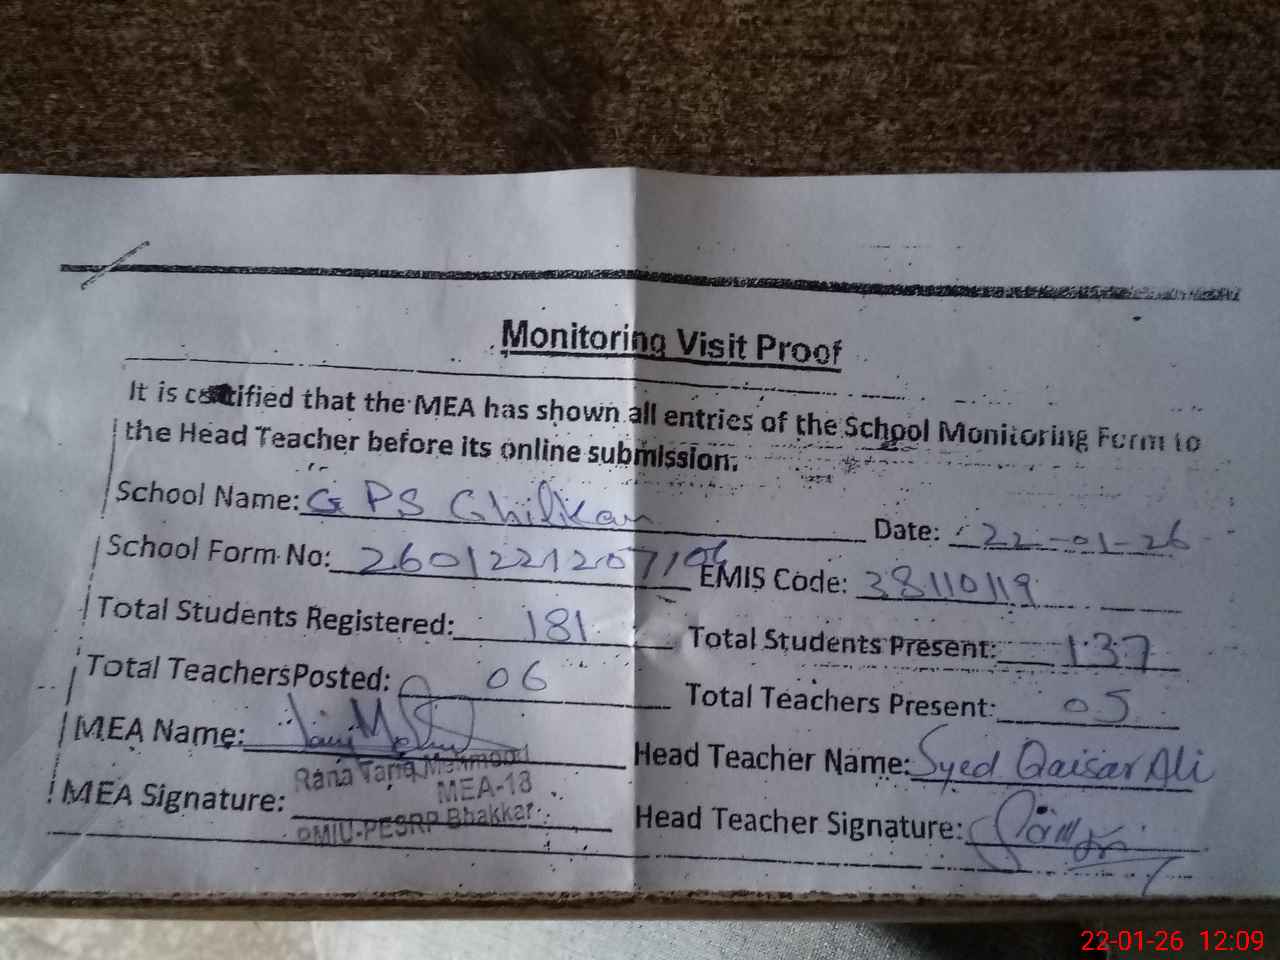 Monitoring Visit Proof
It is certified that the MEA has shown all entries of the School Monitoring Form to
the Head Teacher before its online submission.
School Name: G PS Ghilikan Date: 22-01-26
School Form No: 260122121207106 EMIS Code: 38110119
Total Students Registered: 181 Total Students Present: 137
Total TeachersPosted: 06 Total Teachers Present: 05
MEA Name: Head Teacher Name: Syed Qaisar Ali
Rana Tariq Mehmood
MEA-18
MEA Signature: Head Teacher Signature:
PMIU-PESRP Bhakkar
22-01-26 12:09